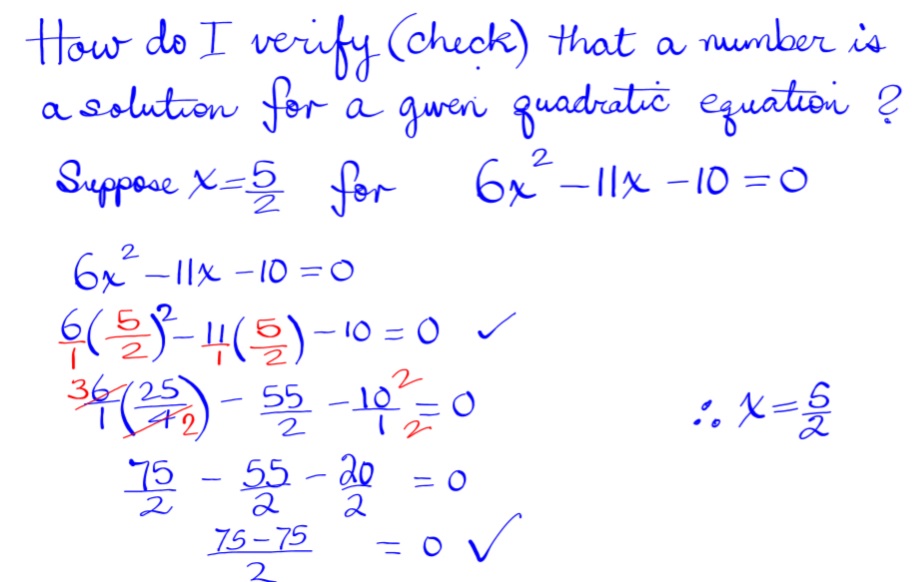 How do I verify (check) that a number is
a solution for a given quadratic equation ?
Suppose x = 5/2 for 6x² - 11x - 10 = 0
6x² - 11x - 10 = 0
6/1 (5/2)² - 11/1 (5/2) - 10 = 0 ✓
3 6/1 (25/4 2) - 55/2 - 10/1 2/2 = 0 ∴ x = 5/2
75/2 - 55/2 - 20/2 = 0
75-75/2 = 0 ✓